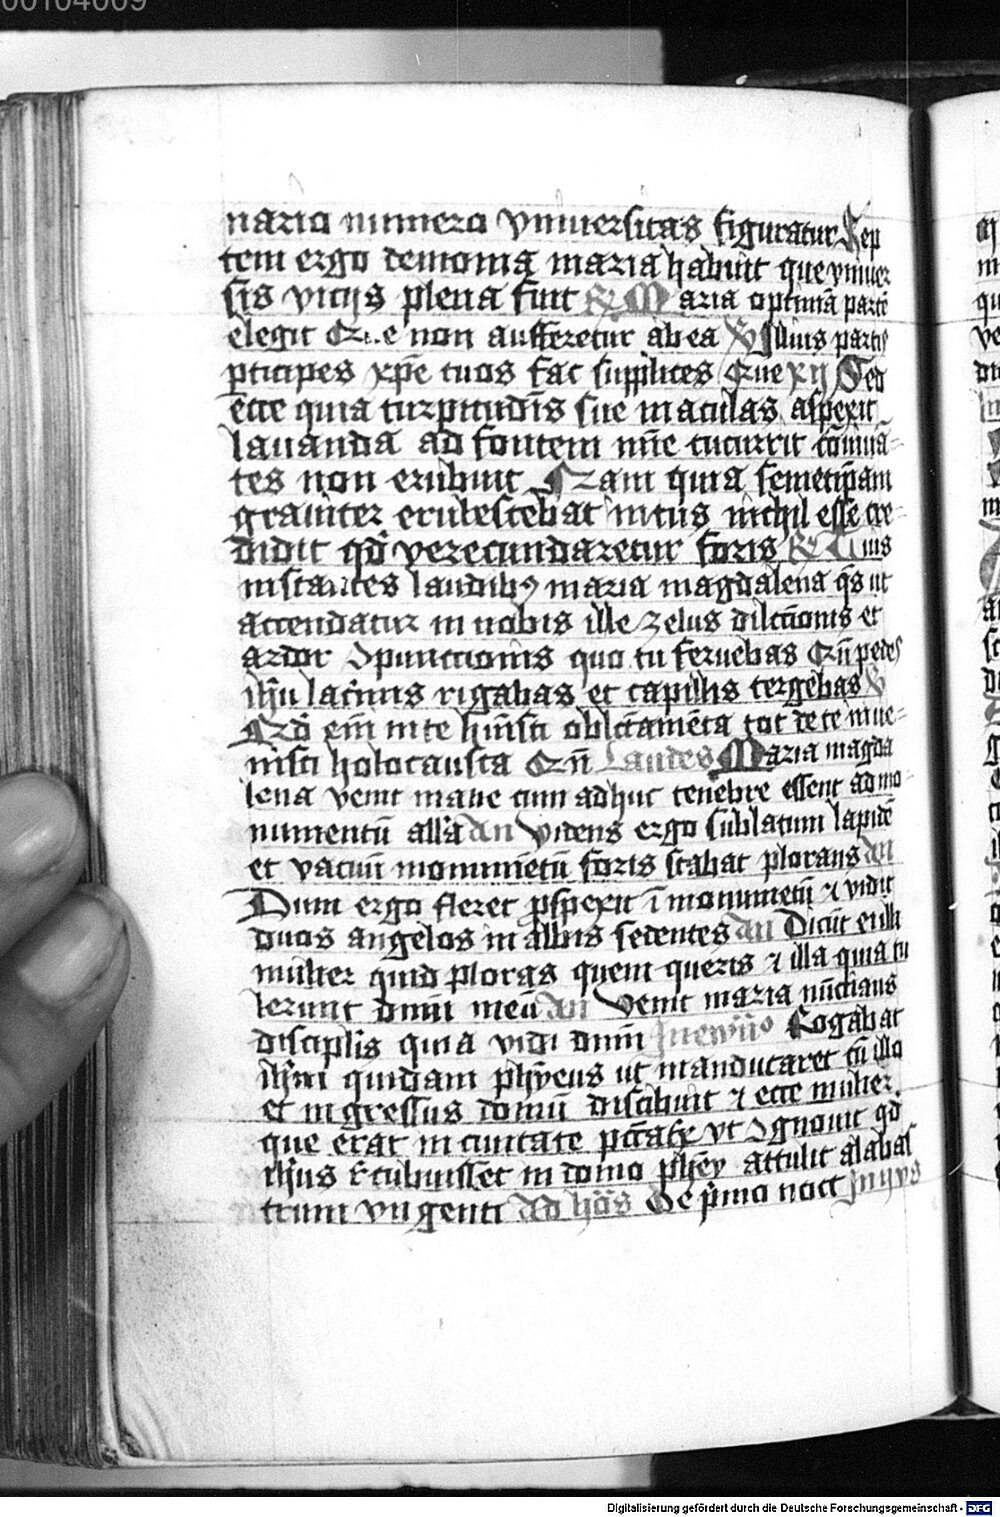 00104009
nario numero vniuersitas figuratur Sep
tem ergo demonia maria habuit que vniuer
sis vicijs plena fuit R Maria optimā partē
elegit Que non aufferetur ab ea V Illius partis
pticipes xpē tuos fac supplices Que xij Sed
ecce quia turpitudīs sue maculas aspexit
lauanda ad fontem mīe cucurrit cōuiuā-
tes non erubuit Nam quia semetipam
grauiter erubescebat intus nichil esse cre-
didit qd verecundaretur foris R Tuis
instantes laudibꝫ maria magdalena qs ut
accendatur in nobis ille zelus dilcīonis et
ardor ꝯpunctionis quo tu feruebas Cū pedes
ihu lacīmis rigabas et capillis tergebas V
Qd em in te huisti oblctamēta tot de te inue-
nisti holocausta Cū Laudes Maria magda
lena venit mane cum adhuc tenebre essent ad mo-
numentū allā an Videns ergo sublatum lapidē
et vacuū monumētū foris stabat plorans an
Dum ergo fleret pspexit ī monumētū ⁊ vidit
duos angelos in albis sedentes an Dicūt ei illi
mulier quid ploras quem queris ⁊ illa quia tu
lerunt dnm meū an Venit maria nūcians
discipłis quia vidi dnm In ewāo Rogabat
ihm quidam phyeus ut manducaret cū illo
et ingressus domū discubuit ⁊ ecce mulier
que erat in ciuitate pctatꝛ vt ꝯgnouit qd
ihus accubuisset in domo phey attulit alabas
trum vngenti Ad hōs De pmo noct In ijvs
Digitalisierung gefördert durch die Deutsche Forschungsgemeinschaft - DFG